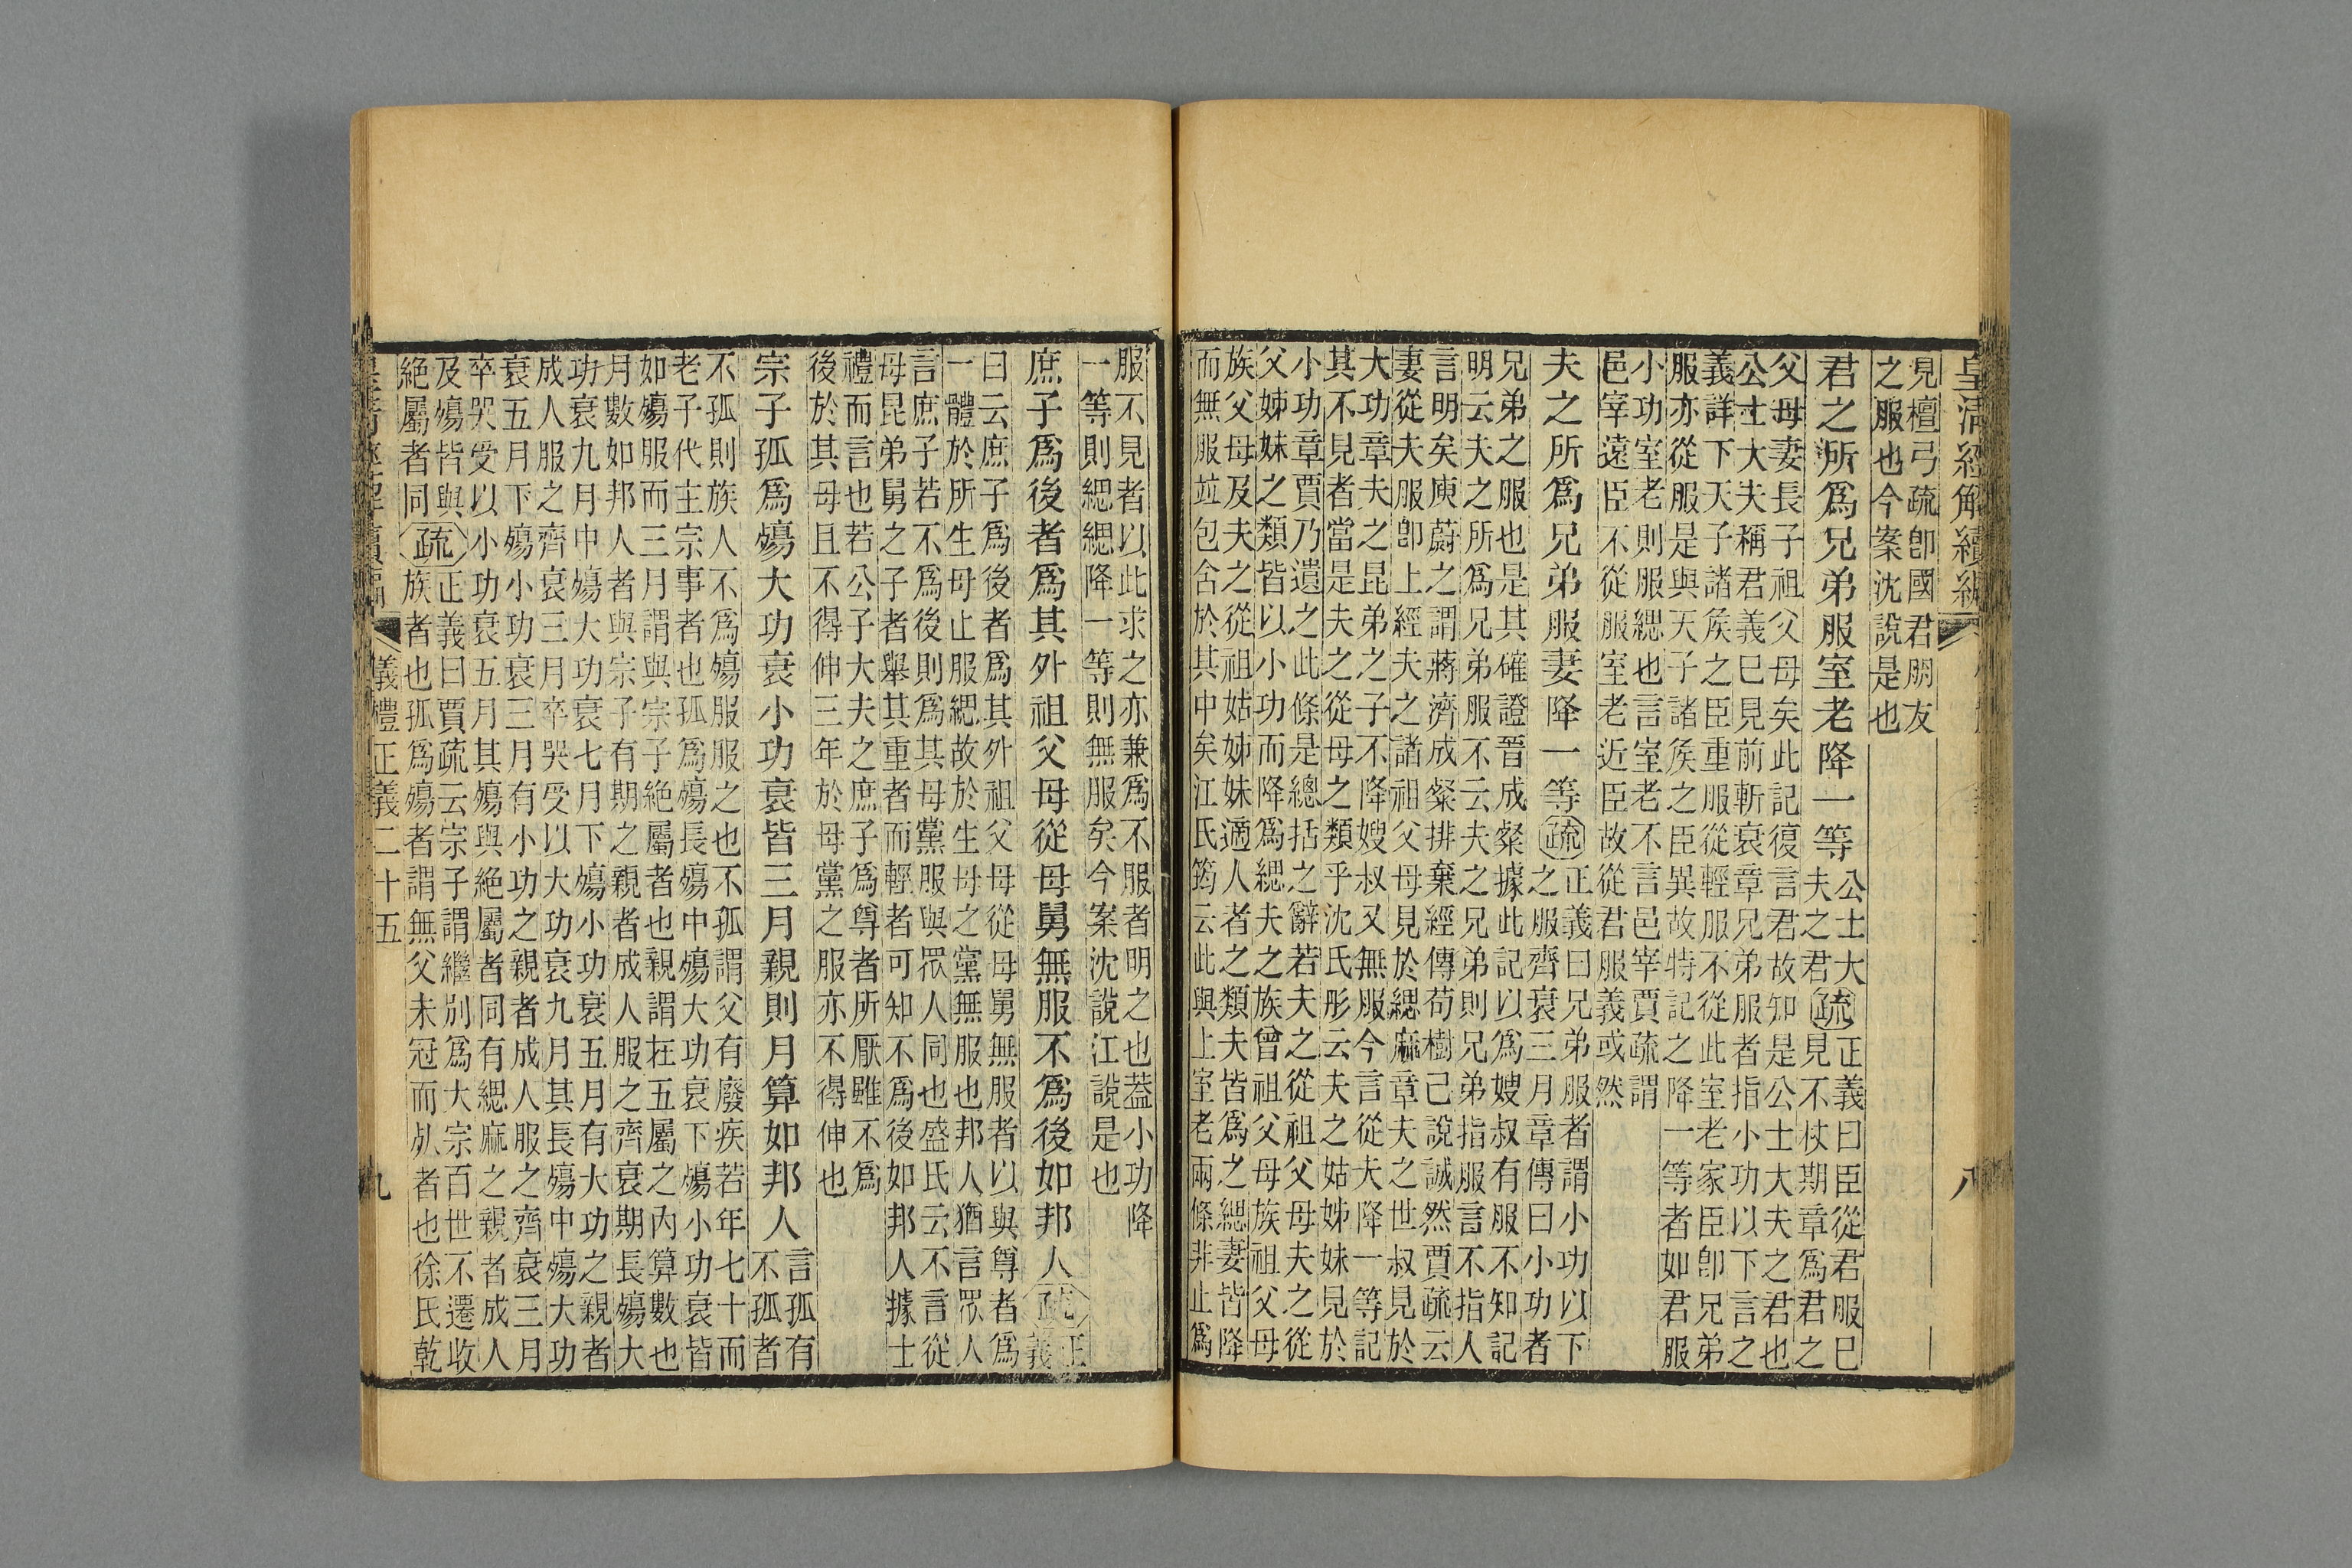 皇清經解續編
八
見檀弓疏卽國君朋友
之服也今案沈說是也
君之所爲兄弟服室老降一等
公士大
夫之君
疏
正義曰臣從君服巳
見不杖期章爲君之
父母妻長子祖父母矣此記復言君故知是公士大夫之君也
公士大夫稱君義巳見前斬衰章兄弟服者指小功以下言之
義詳下天子諸矦之臣重服從輕服不從此室老家臣卽兄弟
服亦從服是與天子諸矦之臣異故特記之降一等者如君服
小功室老則服緦也言室老不言邑宰賈疏謂
邑宰遠臣不從服室老近臣故從君服義或然
夫之所爲兄弟服妻降一等
疏
正義曰兄弟服者謂小功以下
之服齊衰三月章傳曰小功者
兄弟之服也是其確證晉成粲據此記以爲嫂叔有服不知記
明云夫之所爲兄弟服不云夫之兄弟則兄弟指服言不指人
言明矣庾蔚之謂蔣濟成粲排棄經傳苟樹己說誠然賈疏云
妻從夫服卽上經夫之諸祖父母見於緦麻章夫之世叔見於
大功章夫之昆弟之子不降嫂叔又無服今言從夫降一等記
其不見者當是夫之從母之類乎沈氏彤云夫之姑姊妹見於
小功章賈乃遺之此條是總括之辭若夫之從祖父母夫之從
父姊妹之類皆以小功而降爲緦夫之族曾祖父母族祖父母
族父母及夫之從祖姑姊妹適人者之類夫皆爲之緦妻皆降
而無服竝包含於其中矣江氏筠云此與上室老兩條非止爲
服不見者以此求之亦兼爲不服者明之也葢小功降
一等則緦緦降一等則無服矣今案沈說江說是也
庶子爲後者爲其外祖父母從母舅無服不爲後如邦人
疏
正
義
曰云庶子爲後者爲其外祖父母從母舅無服者以與尊者爲
一體於所生母止服緦故於生母之黨無服也邦人猶言眾人
言庶子若不爲後則爲其母黨服與眾人同也盛氏云不言從
母昆弟舅之子者舉其重者而輕者可知不爲後如邦人據士
禮而言也若公子大夫之庶子爲尊者所厭雖不爲
後於其母且不得伸三年於母黨之服亦不得伸也
宗子孤爲殤大功衰小功衰皆三月親則月算如邦人
言孤有
不孤者
不孤則族人不爲殤服服之也不孤謂父有廢疾若年七十而
老子代主宗事者也孤爲殤長殤中殤大功衰下殤小功衰皆
如殤服而三月謂與宗子絕屬者也親謂在五屬之內算數也
月數如邦人者與宗子有期之親者成人服之齊衰期長殤大
功衰九月中殤大功衰七月下殤小功衰五月有大功之親者
成人服之齊衰三月卒哭受以大功衰九月其長殤中殤大功
衰五月下殤小功衰三月有小功之親者成人服之齊衰三月
卒哭受以小功衰五月其殤與絕屬者同有緦麻之親者成人
及殤皆與
絕屬者同
疏
正義曰賈疏云宗子謂繼別爲大宗百世不遷收
族者也孤爲殤者謂無父未冠而死者也徐氏乾
儀禮正義二十五
九